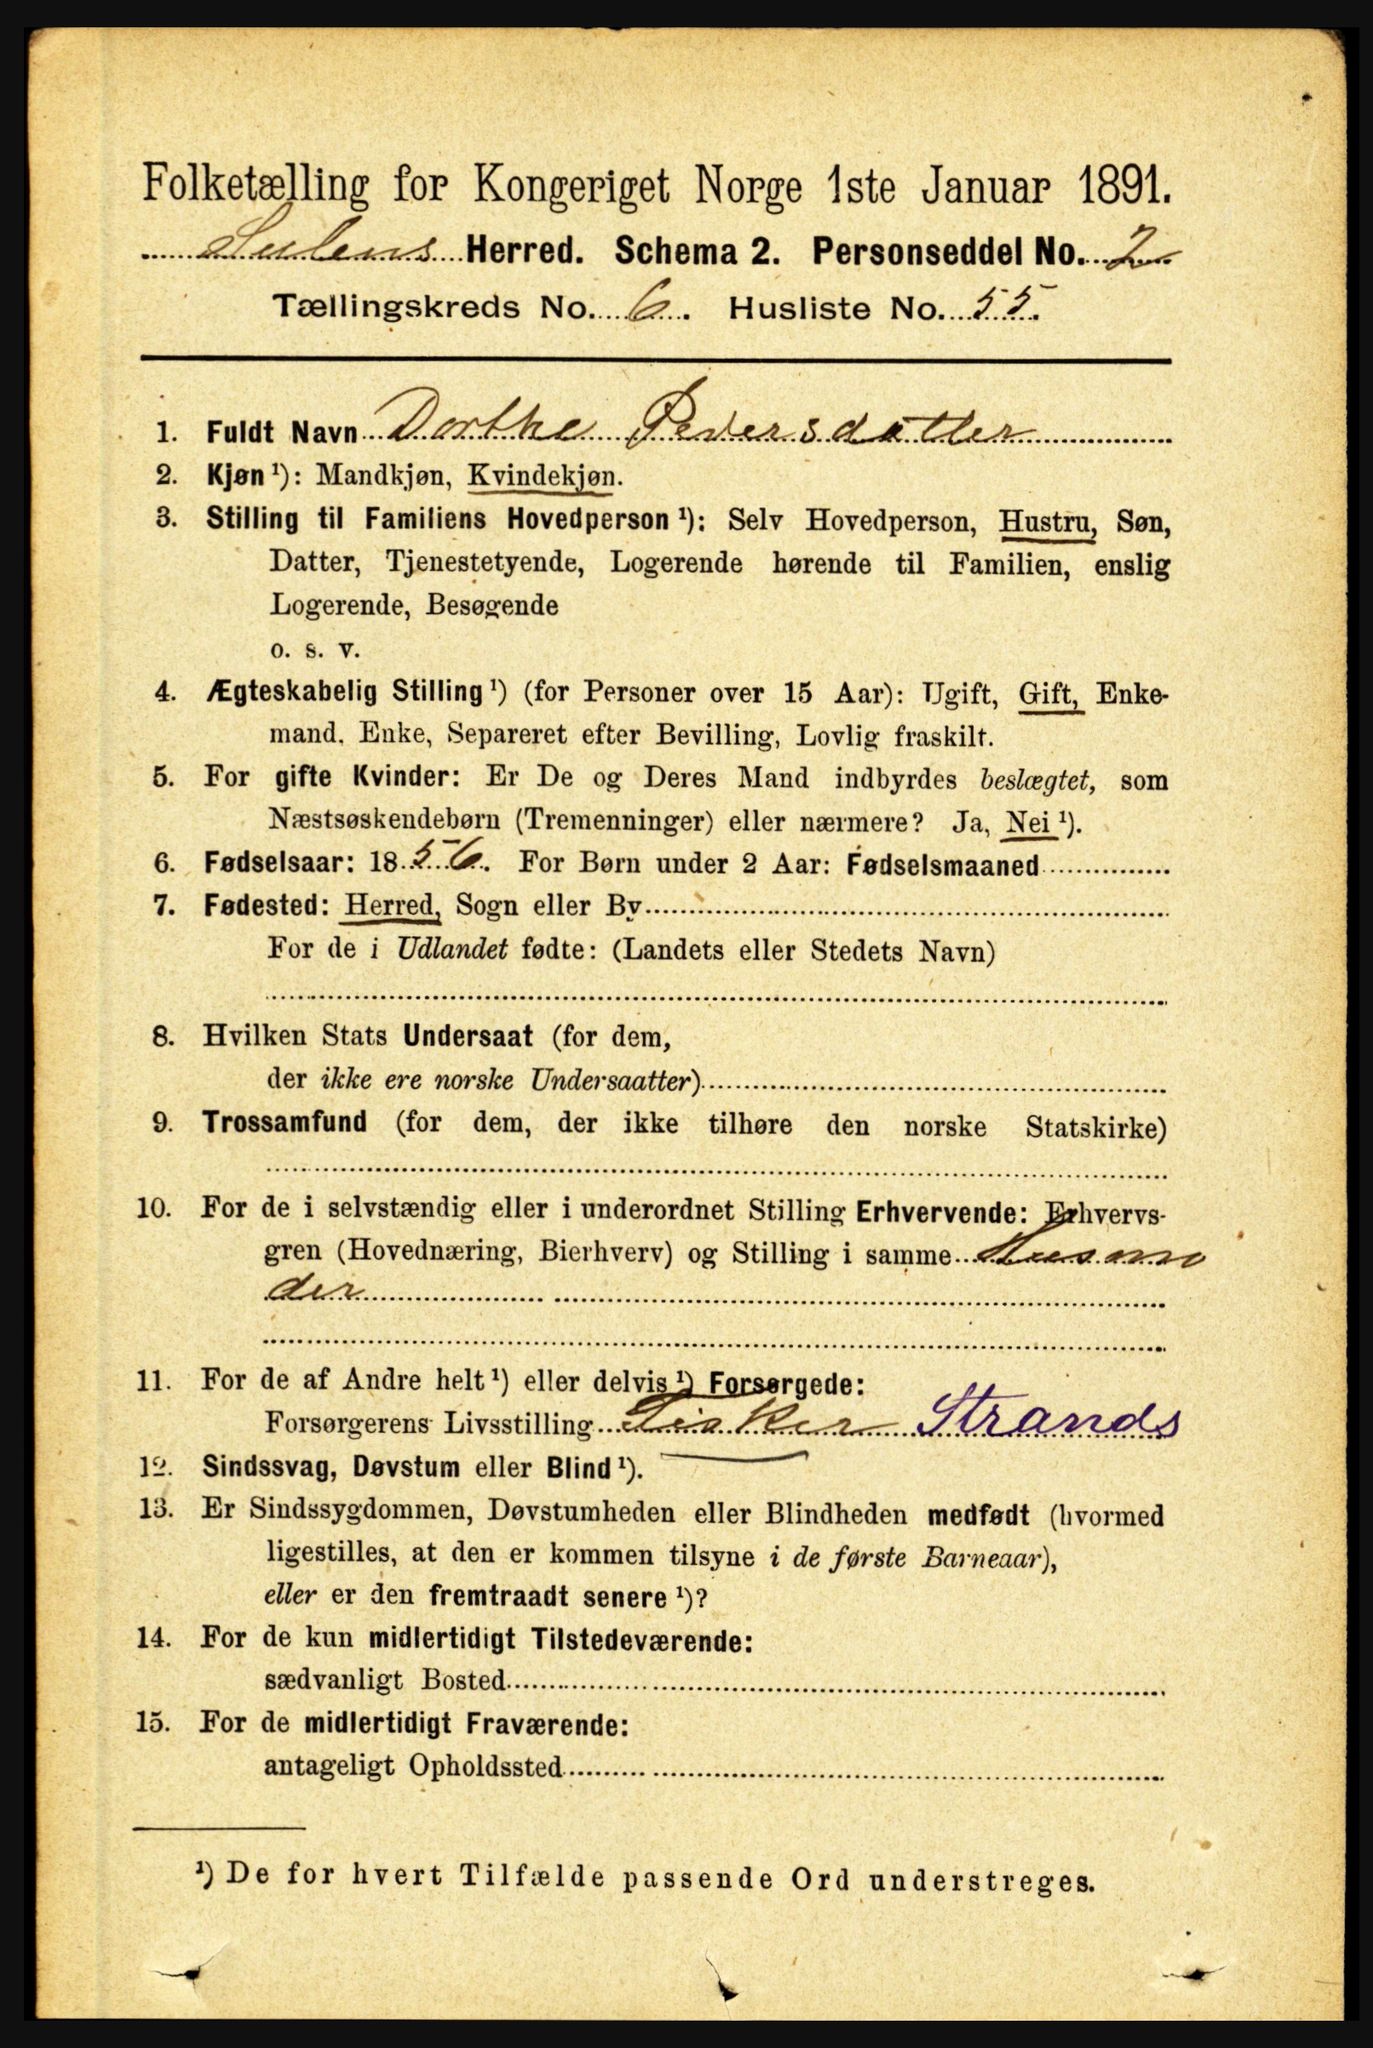 Folketælling for Kongeriget Norge 1ste Januar 1891.
Sulens Herred. Schema 2. Personseddel No. 2
Tællingskreds No. 6. Husliste No. 55.
1. Fuldt Navn Dorthe Pedersdatter
2. Kjøn ¹): Mandkjøn, Kvindekjøn.
3. Stilling til Familiens Hovedperson ¹): Selv Hovedperson, Hustru, Søn,
Datter, Tjenestetyende, Logerende hørende til Familien, enslig
Logerende, Besøgende
o. s. v.
4. Ægteskabelig Stilling ¹) (for Personer over 15 Aar): Ugift, Gift, Enke-
mand, Enke, Separeret efter Bevilling, Lovlig fraskilt.
5. For gifte Kvinder: Er De og Deres Mand indbyrdes beslægtet, som
Næstsøskendebørn (Tremenninger) eller nærmere? Ja, Nei ¹).
6. Fødselsaar: 1856. For Børn under 2 Aar: Fødselsmaaned
7. Fødested: Herred, Sogn eller By
For de i Udlandet fødte: (Landets eller Stedets Navn)
8. Hvilken Stats Undersaat (for dem,
der ikke ere norske Undersaatter)
9. Trossamfund (for dem, der ikke tilhøre den norske Statskirke)
10. For de i selvstændig eller i underordnet Stilling Erhvervende: Erhvervs-
gren (Hovednæring, Bierhverv) og Stilling i samme Husmo
der
11. For de af Andre helt ¹) eller delvis ¹) Forsørgede:
Forsørgerens Livsstilling Fisker Strands
12. Sindssvag, Døvstum eller Blind ¹).
13. Er Sindssygdommen, Døvstumheden eller Blindheden medfødt (hvormed
ligestilles, at den er kommen tilsyne i de første Barneaar),
eller er den fremtraadt senere ¹)?
14. For de kun midlertidigt Tilstedeværende:
sædvanligt Bosted
15. For de midlertidigt Fraværende:
antageligt Opholdssted
¹) De for hvert Tilfælde passende Ord understreges.